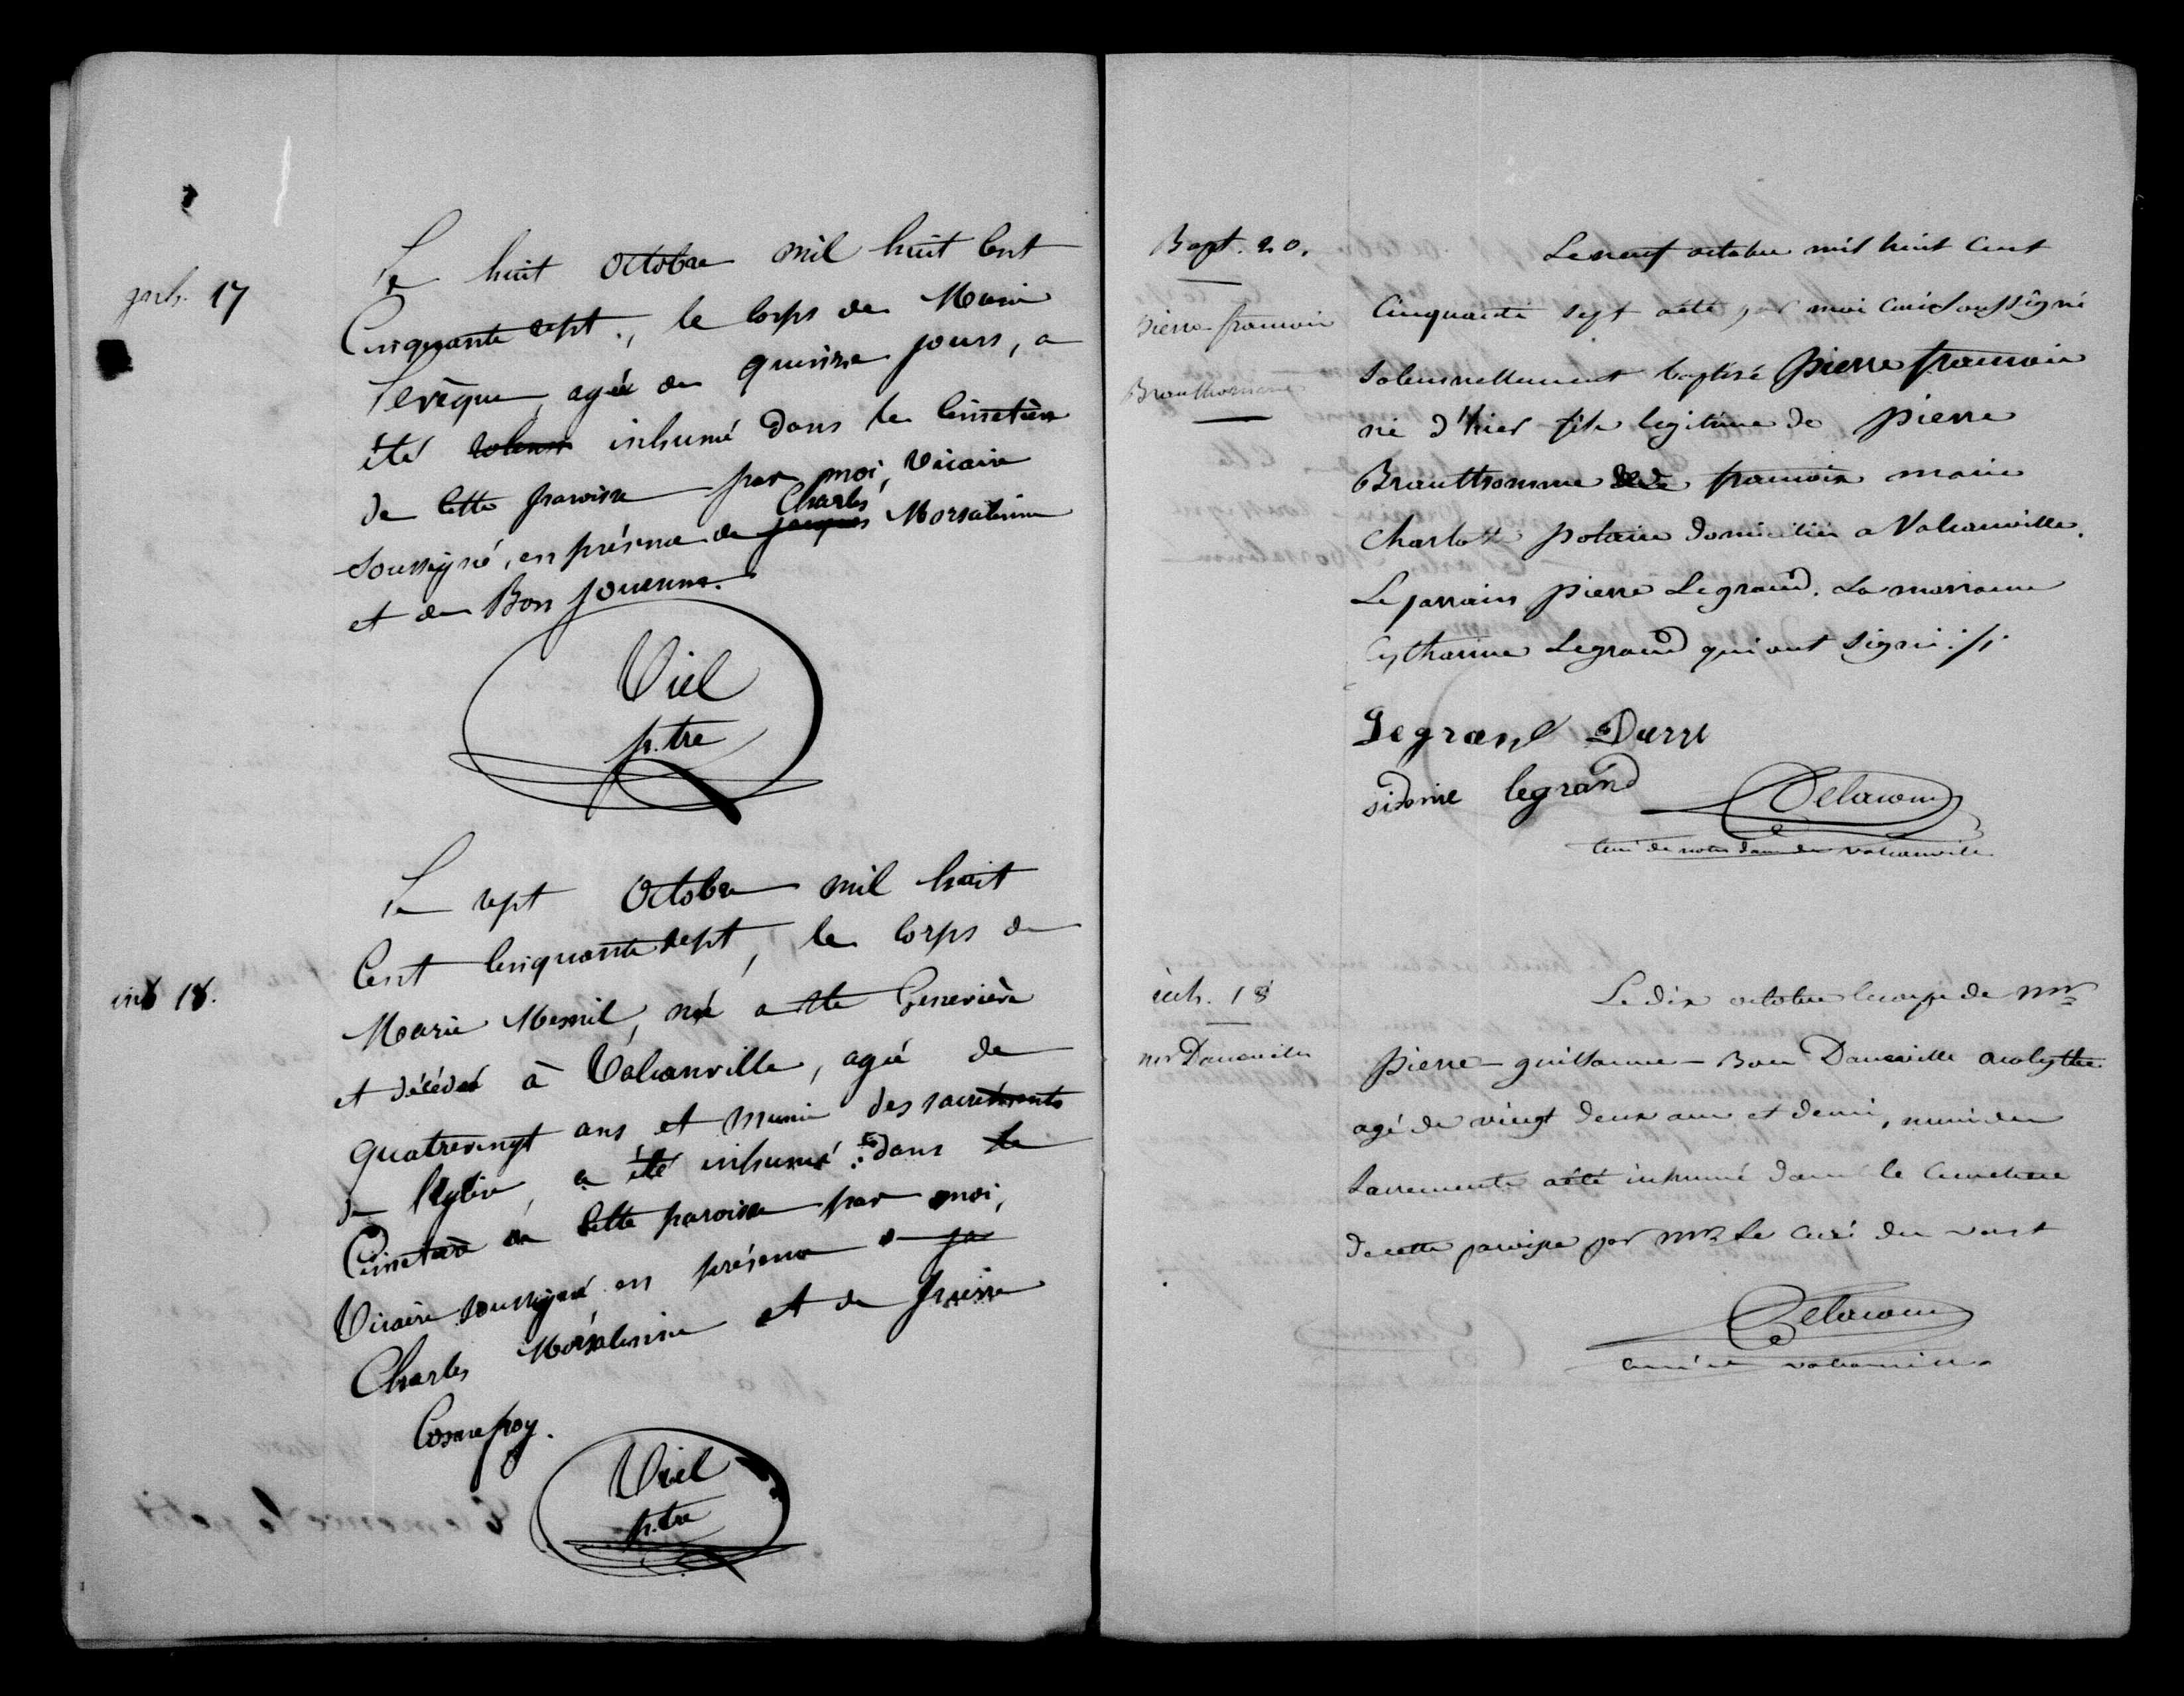 inh. 17
Le huit Octobre mil huit Cent
Cinquante sept, le corps de Marie
Levêque, agée de quinze jours, a
été inhumé dans le Cimetière
de Cette paroisse par moi, Vicaire
Soussigné, en présence de jacques Charles Morsalinne
et de Bon jouenne.
Viel
p.tre
inh 18.
Le sept Octobre mil huit
Cent Cinquante sept, le Corps de
Marie Mesnil, né a Ste Geneviève
et décédé à Valcanville, agé de
quatrevingt ans et muni des sacréments
de l'Eglise, a été inhumé dans le
Cimetière de Cette paroisse par moi,
Vicaire soussigné en présence de ja
Charles Morsalinne et de pierre
Cosnefroy.
Viel
p.tre
Bapt. 20.
pierre francois
Brauthomme
Le neuf octobre mil huit Cent
Cinquante sept a été par moi curé Soussigné
Solennellement baptisé pierre francois
né d'hier fils legitime de pierre
Brauthomme et de francoise marie
Charlotte potaire domiciliés a Valcanville.
Le parrain pierre Legrand. La marraine
Cytharine Legrand qui ont signé ./.
Legrand
sidonie legrand
Delacour
Curé de notre dame de valcanville
inh. 18
mr Dancoville
Le dix octobre le corps de Mr
pierre - guillaume - Bon Daneville acolythe
agé de vingt deux ans et demi, muni des
Sacrements a été inhumé dans le Cimetiere
de cette paroisse par Mr Le Curé du vast
Delacour
curé de valcanville.